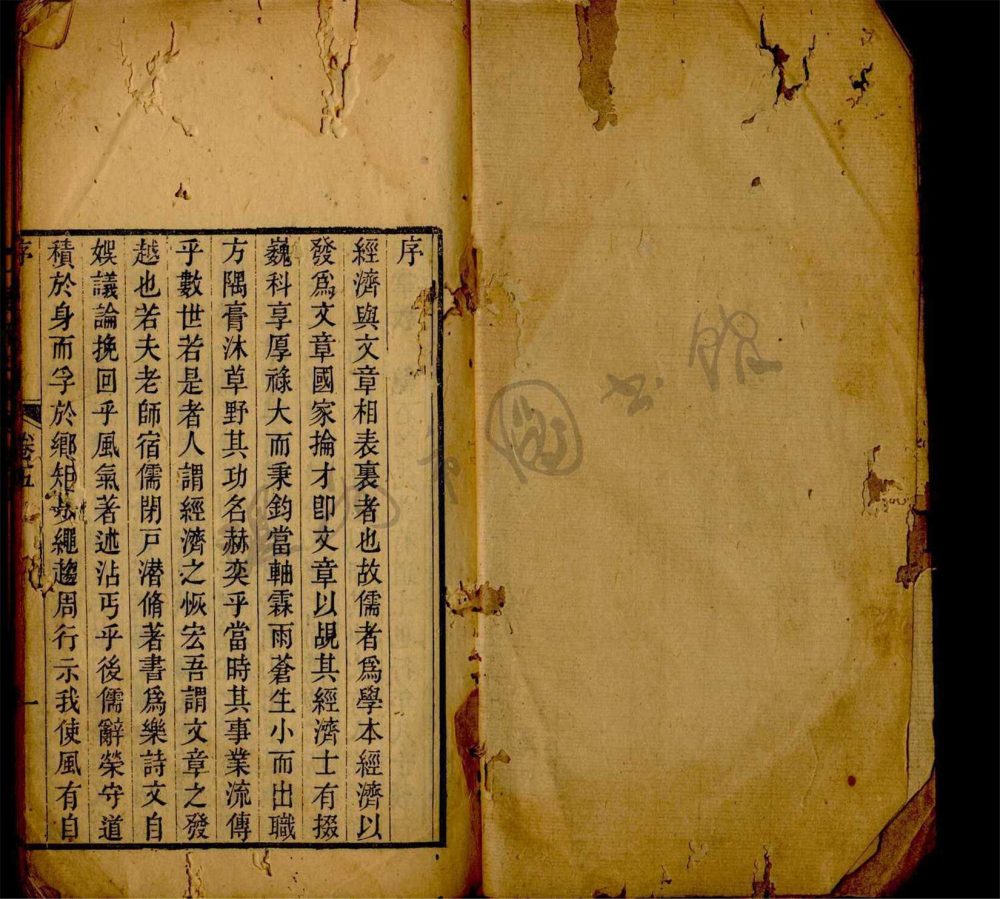 序
經濟與文章相表裏者也故儒者爲學本經濟以
發爲文章國家掄才即文章以覘其經濟士有掇
巍科享厚祿大而秉鈞當軸霖雨蒼生小而出職
方隅膏沐草野其功名赫奕乎當時其事業流傳
乎數世若是者人謂經濟之恢宏吾謂文章之發
越也若夫老師宿儒閉戶潜脩著書爲樂詩文自
娛議論挽回乎風氣著述沾丐乎後儒辭榮守道
積於身而孚於鄉矩步繩趨周行示我使風有自
序
卷五
一
圖書館